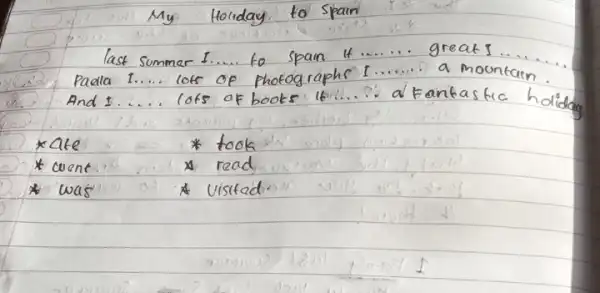 My Holiday to Spain
last Summer I..... to Spain it ....... great I ........
Paella I.... lots of photographs I ....... a mountain.
And I ...... lots of books it ..... a Fantastic holiday
* ate * took
* went * read
* was * visited